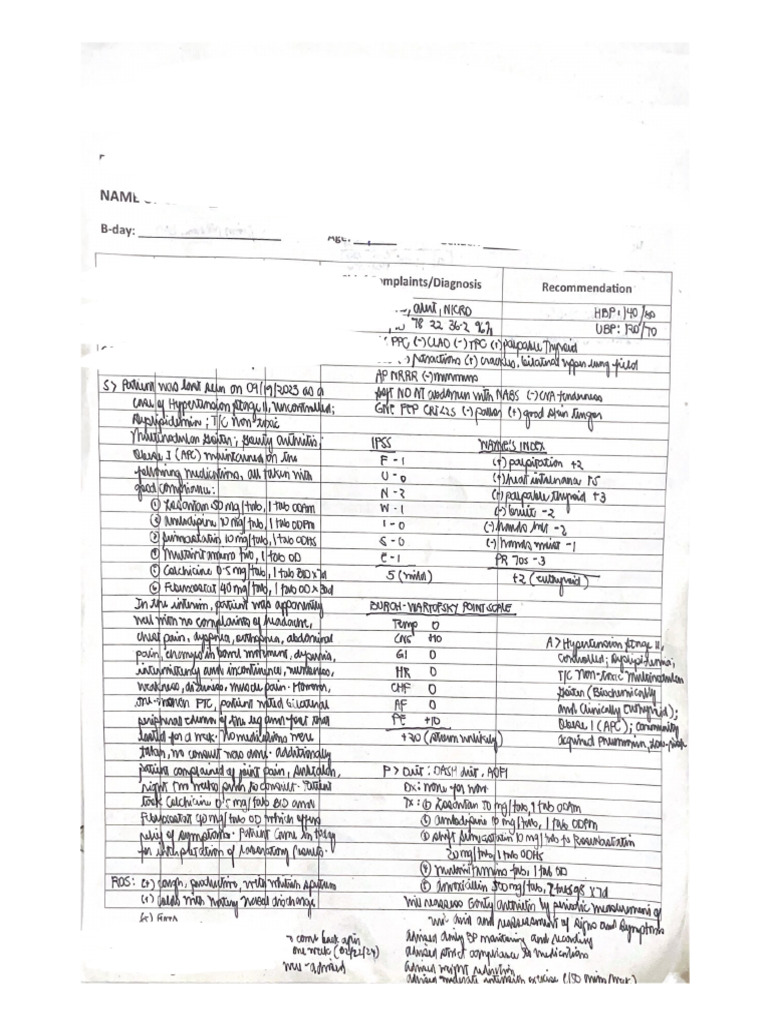 NAME
B-day:
Complaints/Diagnosis
Recommendation
alert, NICRD
78 22 36.2 96%
HBP: 140/80
UBP: 130/70
PPC (-) CLAD (-) TPC (+) palpable thyroid
retractions (+) crackles, bilateral upper lung field
AP NRRR (-) murmurs
soft NO NT abdomen with NABS (-) CVA tenderness
GNE PEP CRT<2S (-) pallor (+) good skin turgor
S> Patient was last seen on 09/19/2023 as a
case of Hypertension stage II, uncontrolled;
Dyslipidemia; T/C non toxic
Multinodular goiter; gouty arthritis;
Obese I (APC) maintained on the
following medications, all taken with
good compliance:
① Losartan 50 mg/tab, 1 tab ODAM
② amlodipine 10 mg/tab, 1 tab ODPM
③ simvastatin 10 mg/tab, 1 tab ODHS
④ Multivit amino tab, 1 tab OD
⑤ Colchicine 0.5 mg/tab, 1 tab BID x 7d
⑥ Febuxostat 40 mg/tab, 1 tab OD x 30d
In the interim, patient was apparently
well with no complaints of headache,
chest pain, dyspnea, orthopnea, abdominal
pain, changes in bowel movement, dysuria,
intermittency and incontinence, numbness,
weakness, dizziness, muscle pain. However,
one-month PTC, patient noted bilateral
peripheral edema of the leg and foot that
lasted for a week. No medications were
taken, no consult was done. Additionally
patient complained of joint pain,
right prior to consult. Patient
took Colchicine 0.5 mg/tab BID and
Febuxostat 40 mg/tab OD which offers
relief of symptoms. Patient came in today
for interpretation of laboratory results.
ROS: (+) cough, productive, with whitish sputum
(+) colds with watery nasal discharge
IPSS
F - 1
U - 0
N - 2
W - 1
I - 0
S - 0
E - 1
5 (mild)
WAYNE'S INDEX
(+) palpitation +2
(+) heat intolerance
(+) palpable thyroid +3
(-) bruit -2
(-) hands hot -2
(-) hands moist -1
PR 70s -3
+2 (euthyroid)
BURCH-WARTOFSKY POINT SCALE
Temp 0
CNS +10
GI 0
HR 0
CHF 0
AF 0
PE +10
+20 (storm unlikely)
A> Hypertension stage II,
controlled; Dyslipidemia;
T/C Non-toxic multinodular
goiter (Biochemically
and Clinically Euthyroid);
Obese I (APC); community
acquired pneumonia, low-risk
P> Diet: DASH diet, AOFI
Dx: none for now
Tx: ① Losartan 50 mg/tab, 1 tab ODAM
② amlodipine 10 mg/tab, 1 tab ODPM
③ shift simvastatin 10 mg/tab to Rosuvastatin
20 mg/tab, 1 tab ODHS
④ multivit amino tab, 1 tab OD
⑤ amoxicillin 500 mg/tab, 2 tabs q8 x 7d
will reassess Gouty arthritis by periodic measurement of
uric acid and reassessment of signs and symptoms
advised daily BP monitoring and recording
advised strict compliance to medications
advised weight reduction
advised moderate intensity exercise (150 mins/week)
> come back after
one week (02/22/24)
well-advised